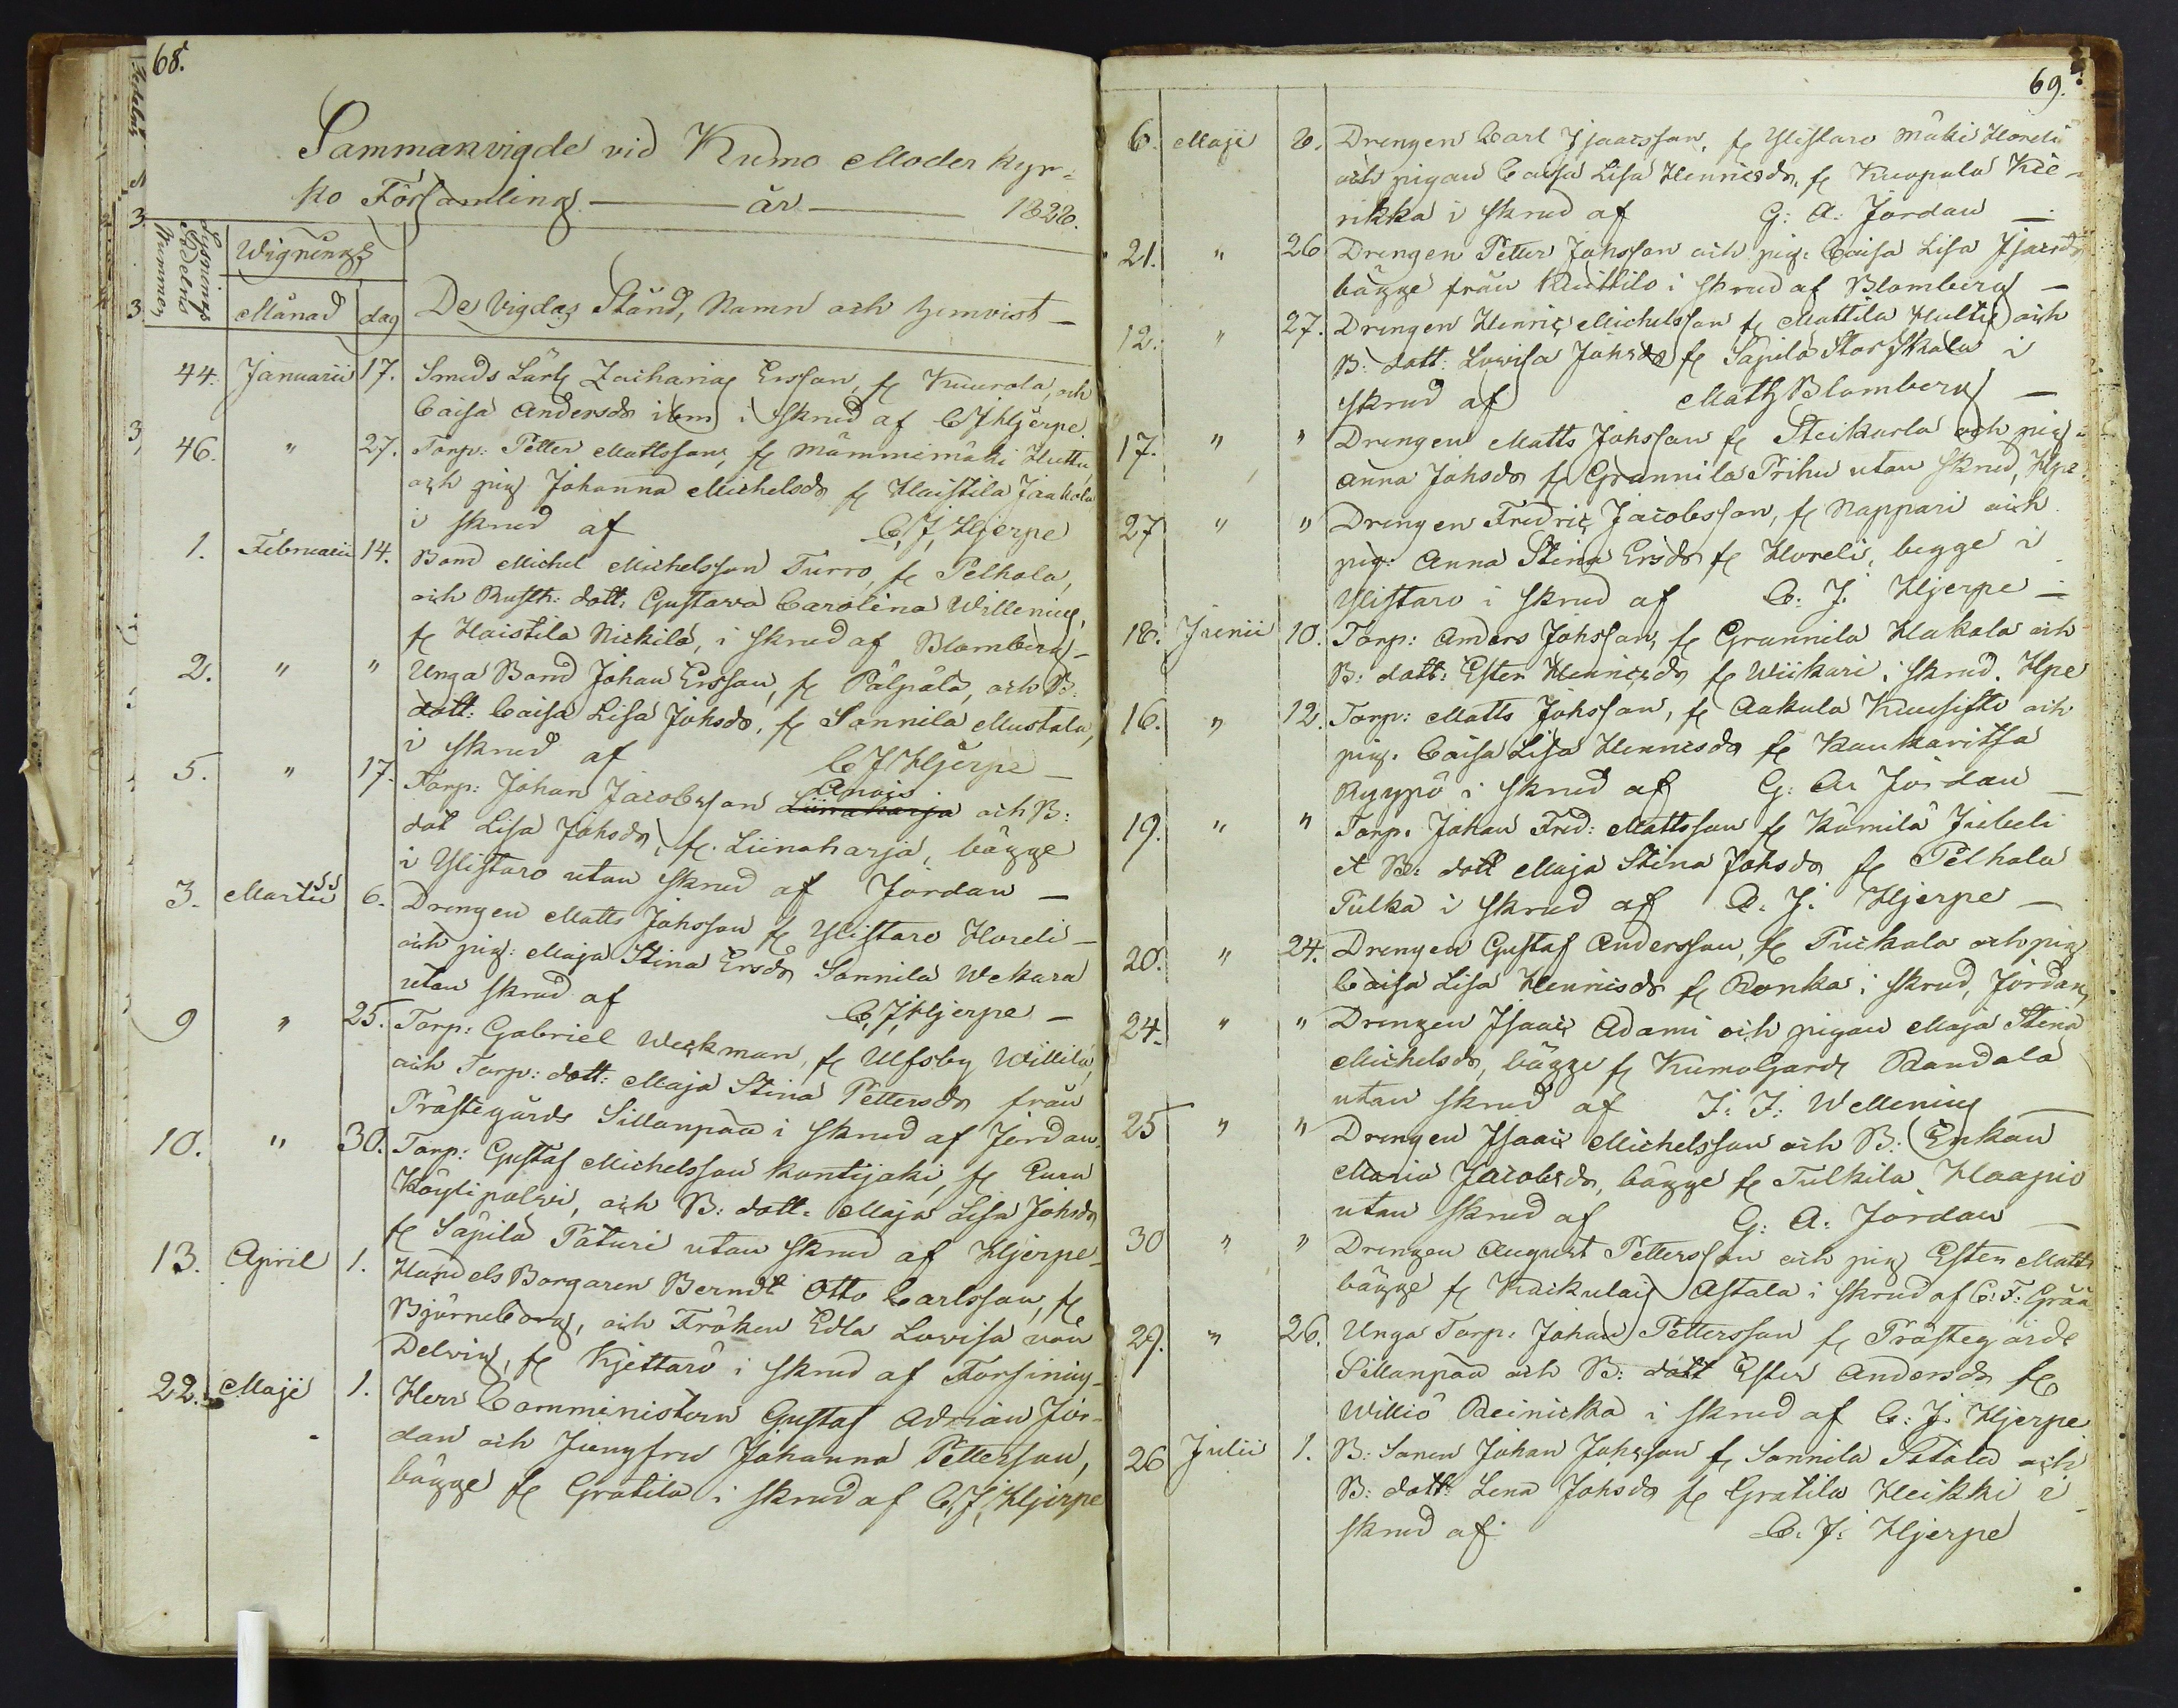 68.
Sammanvigde vid Kumo Moder kyr-
ko Församling — år — 1828.
Lysnings Sedelns Nummer
Wignings
Månad dag De Vigdas Stånd, Namn och hemvist —
44. Januarii 17. Smeds Lärl Zacharias Ersson, fr Kuurola, och
Caisa Andersdr ibm i skrud af C J Hjerpe
46. " 27. Torp: Petter Mattsson, fr Mämmimäki Huttu,
och pig Johanna Michelsdr fr Haistila Jaakola
i skrud af C. J. Hjerpe
1. Februarii 14. Bond Michel Michelsson Turro, fr Pelhola,
och Rusth: dott: Gustava Carolina Willenius,
fr Haistila Nickilä, i skrud af Blomberg —
2. " " Unga Bond Johan Ersson, fr Pälpälä, och B:
dott: Caisa Lisa Johsdr. fr Sonnila Mustala,
i skrud af C J Hjerpe —
5. " 17. Torp: Johan Jacobsson Liinaharja och B:
dot Lisa Johsdr, fr. Liinaharja, bägge
i Ylistaro utan skrud af Jordan —
3. Martii 6. Drengen Matts Johsson fr Ylistaro Horeli —
och pig: Maja Stina Ersdr Sonnila Wekara
utan skrud af C. J. Hjerpe —
9 " 25. Torp: Gabriel Weckman, fr Ulfsby Willilä
och Torp: dott: Maja Stina Pettersdr från
Prästegårds Sillanpää i skrud af Jordan.
10. " 30. Torp: Gustaf Michelsson Kontijoki, fr Eura
Köylipolvi, och B: dott: Maja Lisa Johsdr
fr Säpilä Päturi utan skrud af Hjerpe —
13. April 1. Handels Borgaren Berndt Otto Carlsson, fr
Björneborg, och Fröken Edla Lovisa von
Delvig, fr Kjettarö i skrud af Forsinius —
22. Maji 1. Herr Comministern Gustaf Adrian Jor-
dan och Jungfru Johanna Petterson,
bägge fr Gratila i skrud af C. J. Hjerpe
69.
6. Maji 8. Drengen Carl Isaacsson, fr Ylistaro Mäki Horeli
och pigan Caisa Lisa Henricsdr, fr Kuopala Kie-
rikka i skrud af G: A: Jordan —
21. " 26 Drengen Petter Johsson och pig: Caisa Lisa Isacsdr
bägge från Kuittilo i skrud af Blomberg —
12. " 27. Drengen Henric Michelsson fr Mattila Hulti och
B: dott: Lovisa Johsdr fr Säpilä Stor Skala i
skrud af Math Blomberg —
17. " " Drengen Matts Johsson fr Steikarla och pig
Anna Johsdr fr Grannila Prihu utan skrud, Hpe.
27 " " Drengen Fredric Jacobsson, fr Nappari och
pig: Anna Stina Ersdr fr Horeli, begge i
Ylistaro i skrud af C. J. Hjerpe —
18. Junii 10. Torp: Anders Johsson, fr Grannila Hakola och
B: dott: Ester Henricsdr fr Wiikari i skrud. Hpe
16. " 12. Torp: Matts Johsson, fr Aakula Kuusisto och
pig. Caisa Lisa Henricsdr fr Kaukaritsa
Ryypö i skrud af G: A: Jordan —
19. " " Torp. Johan Fred: Mattsson fr Kämilä Jubeli
et B: dott Maja Stina Johsdr fr Pelhala
Tulka i skrud af C. J. Hjerpe —
20. " 24. Drengen Gustaf Andersson, fr Puckala och pig
Caisa Lisa Henricsdr fr Ronka i skrud, Jordan,
24. " " Drengen Isaac Adami och pigan Maja Stina
Michelsdr, bägge fr Kumo Gards Randala
utan skrud af F: F: Wellenius
25 " " Drengen Isaac Michelsson och B: Enkan
Maria Jacobsdr, bägge fr Tulkila Haapio
utan skrud af G: A: Jordan —
30 " " Drengen August Pettersson och pig Ester Matts
bägge fr Kaikulais Astala i skrud af C: F: Grää
29. " 26. Unga Torp: Johan Pettersson fr Prästegårds
Sillanpää och B: dott Ester Andersdr fr
Williö Reinicka i skrud af C: J. Hjerpe
26 Julii 1. B: Sonen Johan Johsson fr Sonnila Ståled och
B: dott: Lena Johsdr fr Gratila Heikki i
skrud af C. J: Hjerpe